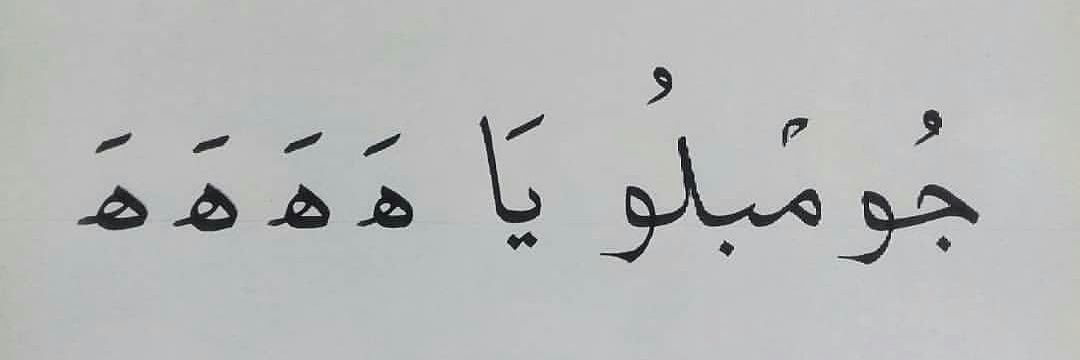 جُومْبلُو يَا هَ هَ هَ هَ